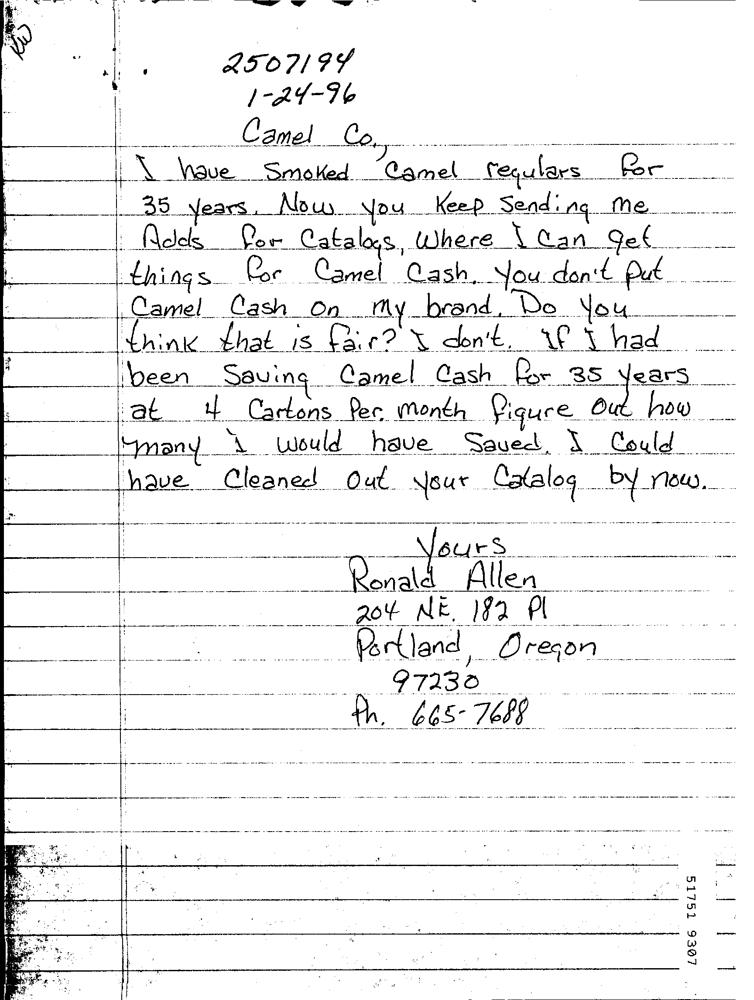 KW
2507194
1-24-96
Camel Co.,
I have Smoked Camel regulars for
35 years. Now you Keep Sending me
Adds for Catalogs, Where I Can get
things for Camel Cash. You don't put
Camel Cash on my brand. Do you
think that is fair? I don't. If I had
been Saving Camel Cash for 35 years
at 4 Cartons Per. month figure out how
many I would have Saved. I Could
have Cleaned Out your Catalog by now.
Yours
Ronald Allen
204 NE. 182 Pl
Portland, Oregon
97230
Ph. 665-7688
51751 9307